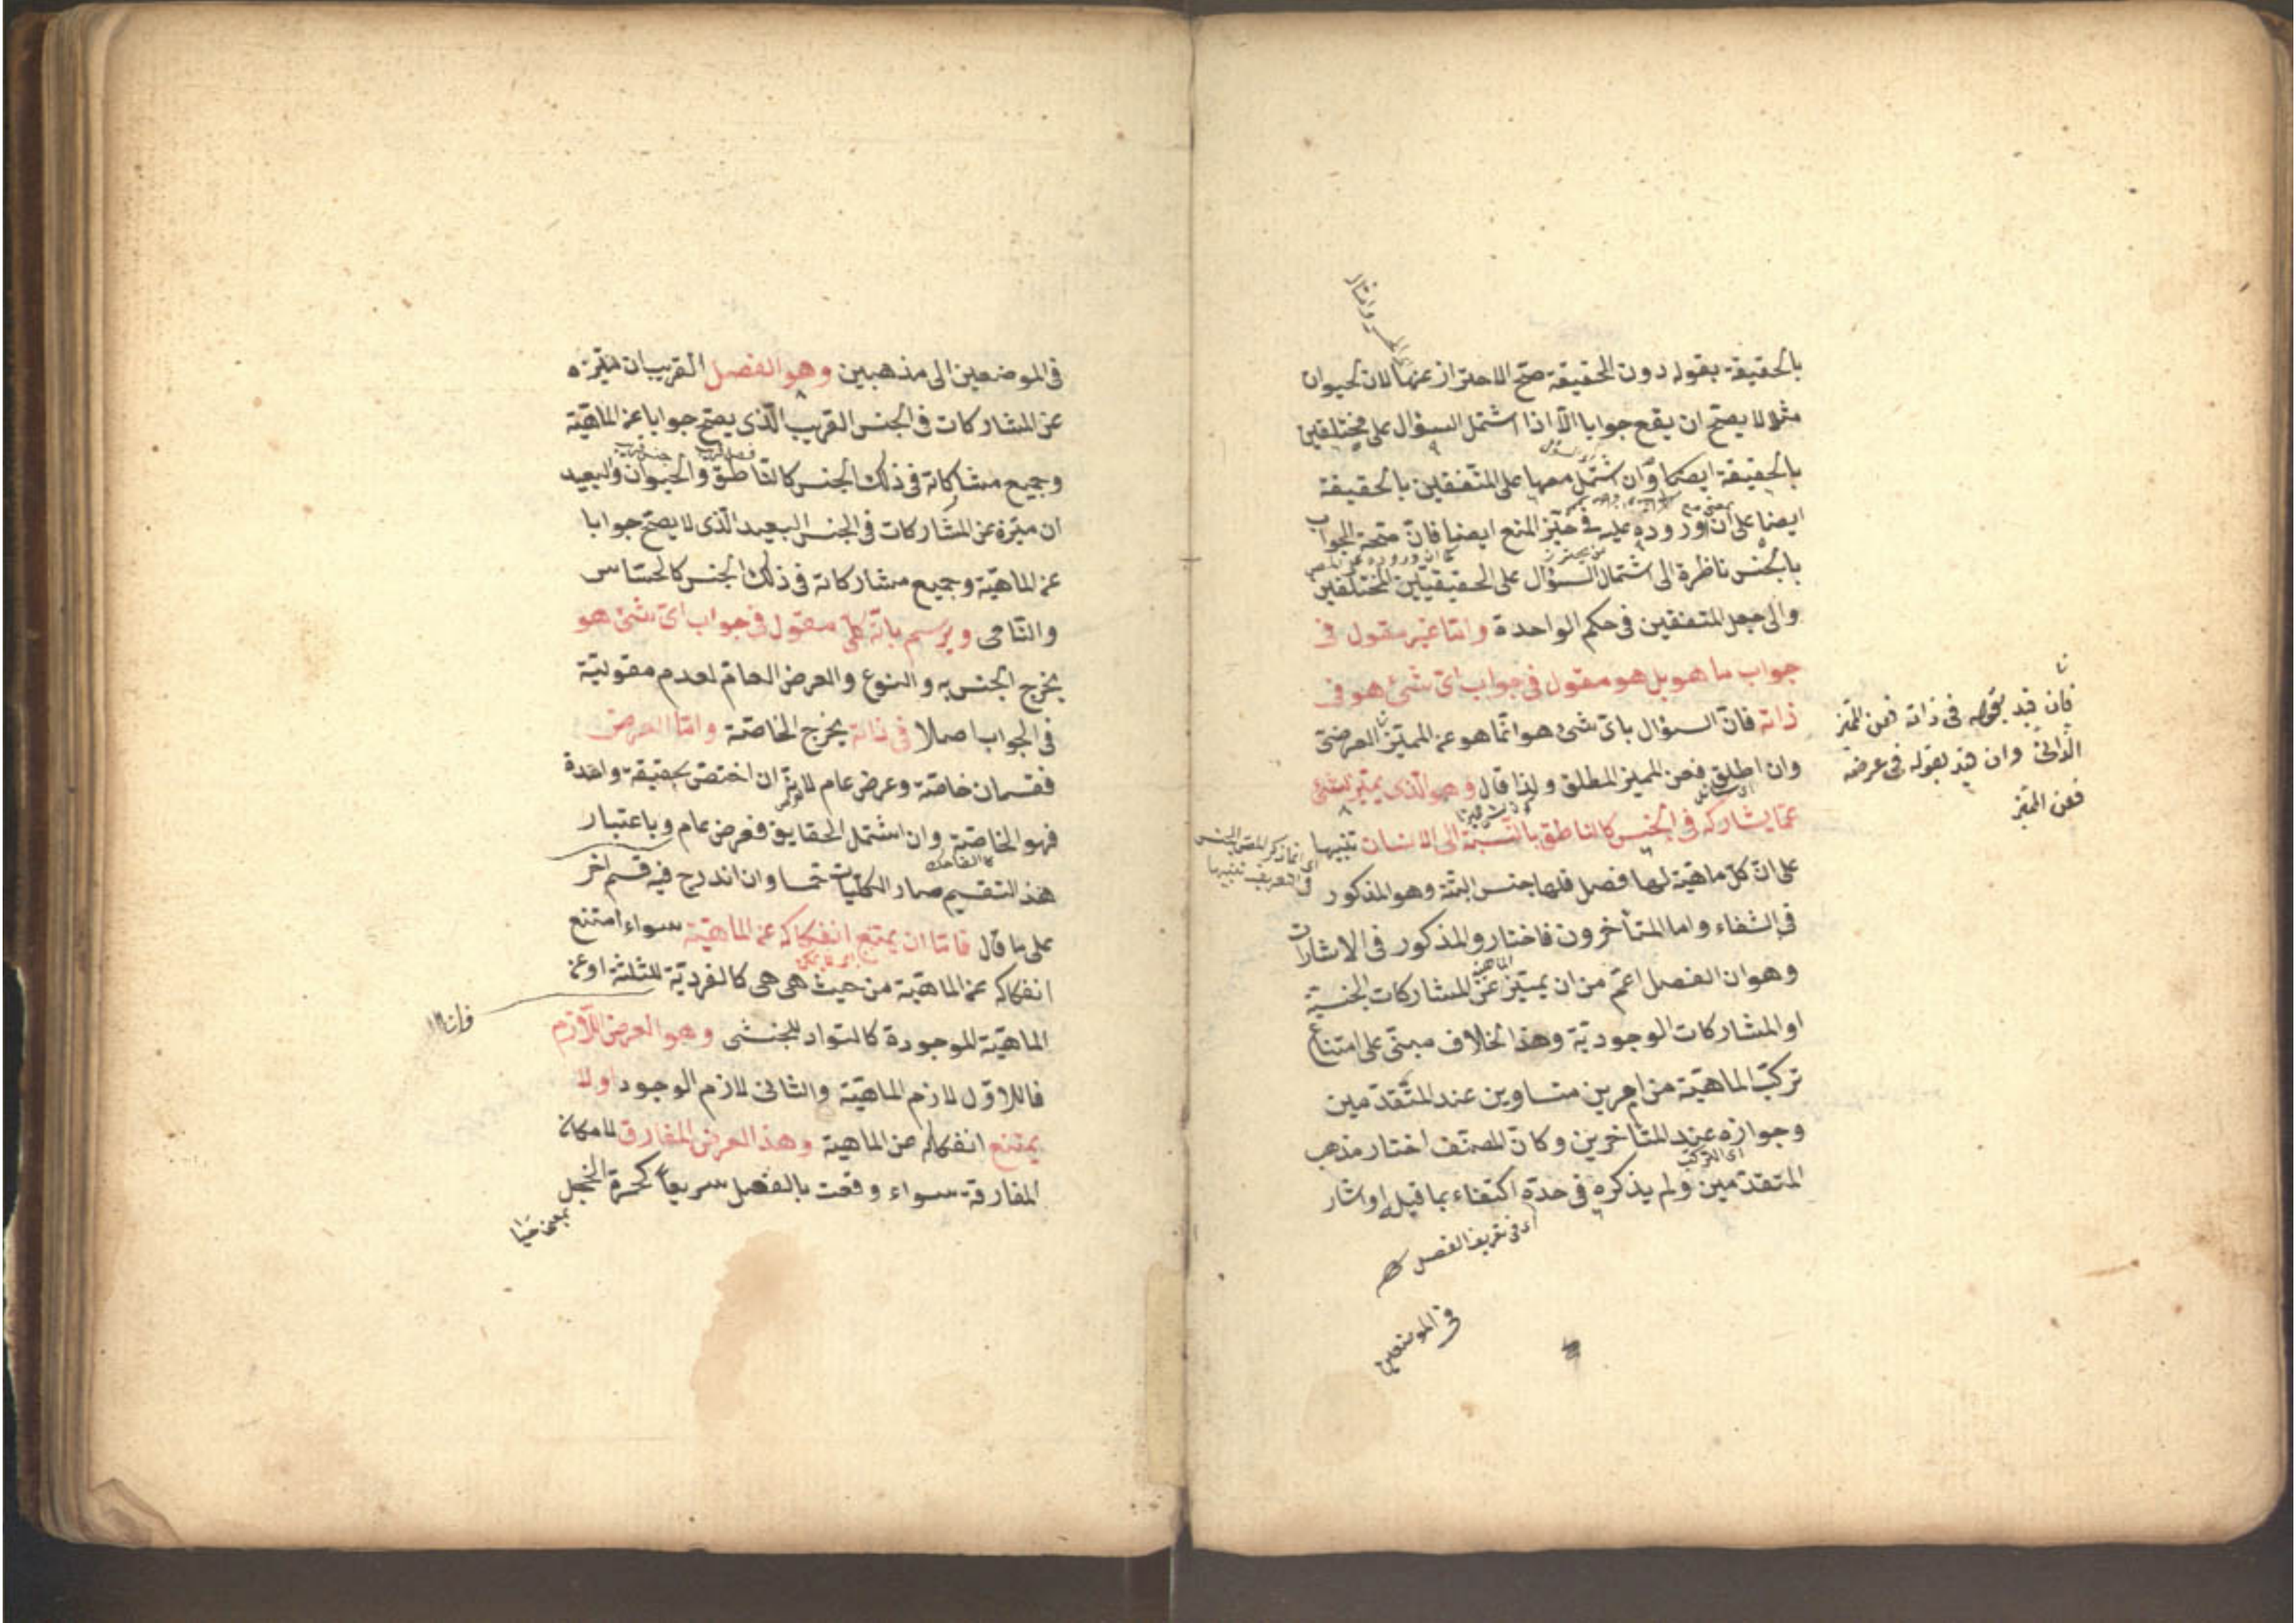 بالحقيقة بقوله دون الحقيقة صح الاحتراز عنها لان الحيوان
مثلا لا يصح ان يقع جوابا الا اذا اشتمل السؤال على مختلفين
بالحقيقة ايضا وان اشتمل معها على المتفقين بالحقيقة
ايضا على ان وروده عليه فى حيز المنع ايضا فان صحة الجواب
بالجنس ناظرة الى اشتمال السؤال على الحقيقيتين المختلفين
والى جعل المتفقين فى حكم الواحدة واما غير مقول فى
جواب ما هو بل هو مقول فى جواب اى شئ هو فى
ذاته فان السؤال باى شئ هو انما هو عن المميز العرضى
وان اطلق فعن المميز المطلق ولذا قال وهو الذى يميز الشئ
عما يشاركه فى الجنس كالناطق بالنسبة الى الانسان تنبيها
على ان كل ماهية لها فصل فلها جنس البتة وهو المذكور
فى الشفاء واما المتأخرون فاختاروا المذكور فى الاشارات
وهو ان الفصل اعم من ان يميز عن المشاركات الجنسية
او المشاركات الوجودية وهذا الخلاف مبنى على امتناع
تركب الماهية من امرين متساوين عند المتقدمين
وجوازه عند المتأخرين وكان المصنف اختار مذهب
المتقدمين ولم يذكره فى حده اكتفاء بما قبله او اشار
اى التركب
اى فى تعريف الفصل
فى الموضعين
فان قيد بقوله فى ذاته فعن المميز
الذاتى وان قيد بقوله فى عرضه
فعن المميز
اى انما ذكر المص الجنس
فى التعريف تنبيها
فى الموضعين الى مذهبين وهو الفصل القريب ان ميزه
عن المشاركات فى الجنس القريب الذى يصح جوابا عن الماهية
وجميع مشاركاته فى ذلك الجنس كالناطق والحيوان والبعيد
ان ميزه عن المشاركات فى الجنس البعيد الذى لا يصح جوابا
عن الماهية وجميع مشاركاته فى ذلك الجنس كالحساس
والنامى ويرسم بانه كلى مقول فى جواب اى شئ هو
يخرج الجنس به والنوع والعرض العام لعدم مقولية
فى الجواب اصلا فى ذاته يخرج الخاصة واما العرضى
فقسمان خاصة وعرض عام لانه ان اختص بحقيقة واحدة
فهو الخاصة وان اشتمل الحقايق فعرض عام وباعتبار
كالضاحك
هذا التقسيم صار الكليات خمسا وان اندرج فيه قسم اخر
على ما قال فاما ان يمتنع انفكاكه عن الماهية سواء امتنع
انفكاكه عن الماهية من حيث هى هى كالفردية للثلثة او عن
الماهية الموجودة كالسواد للحبشى وهو العرض اللازم
فالاول لازم الماهية والثانى لازم الوجود او لا
يمتنع انفكاكه عن الماهية وهذا العرض المفارق لامكان
المفارقة سواء وقعت بالفعل سريعا كحمرة الخجل